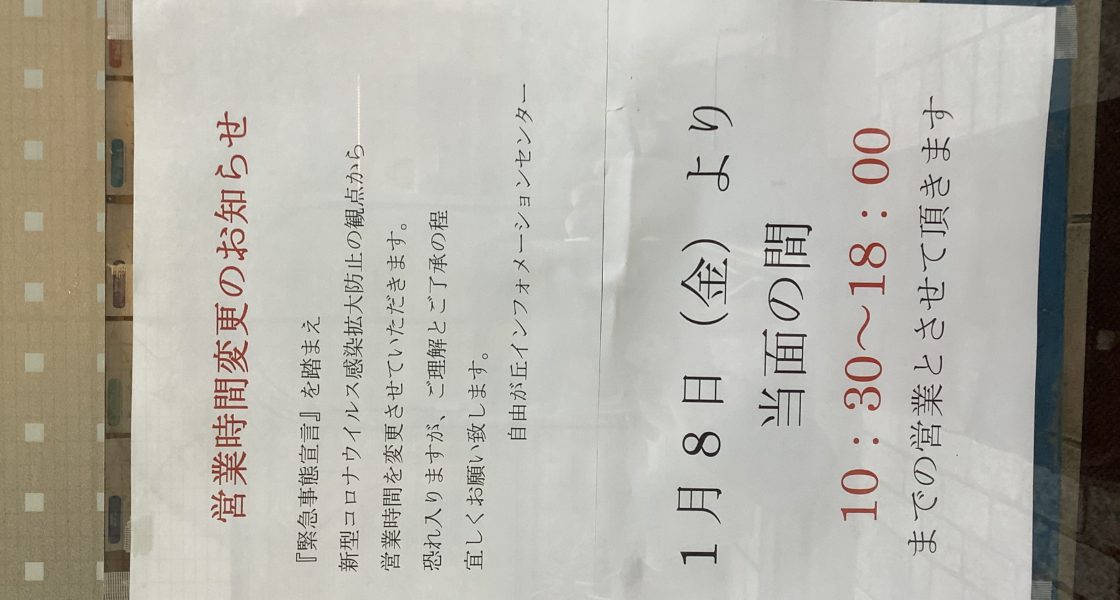 営業時間変更のお知らせ
『緊急事態宣言』を踏まえ
新型コロナウイルス感染拡大防止の観点から
営業時間を変更させていただきます。
恐れ入りますが、ご理解とご了承の程
宜しくお願い致します。
自由が丘インフォメーションセンター
1月8日（金）より
当面の間
10：30～18：00
までの営業とさせて頂きます